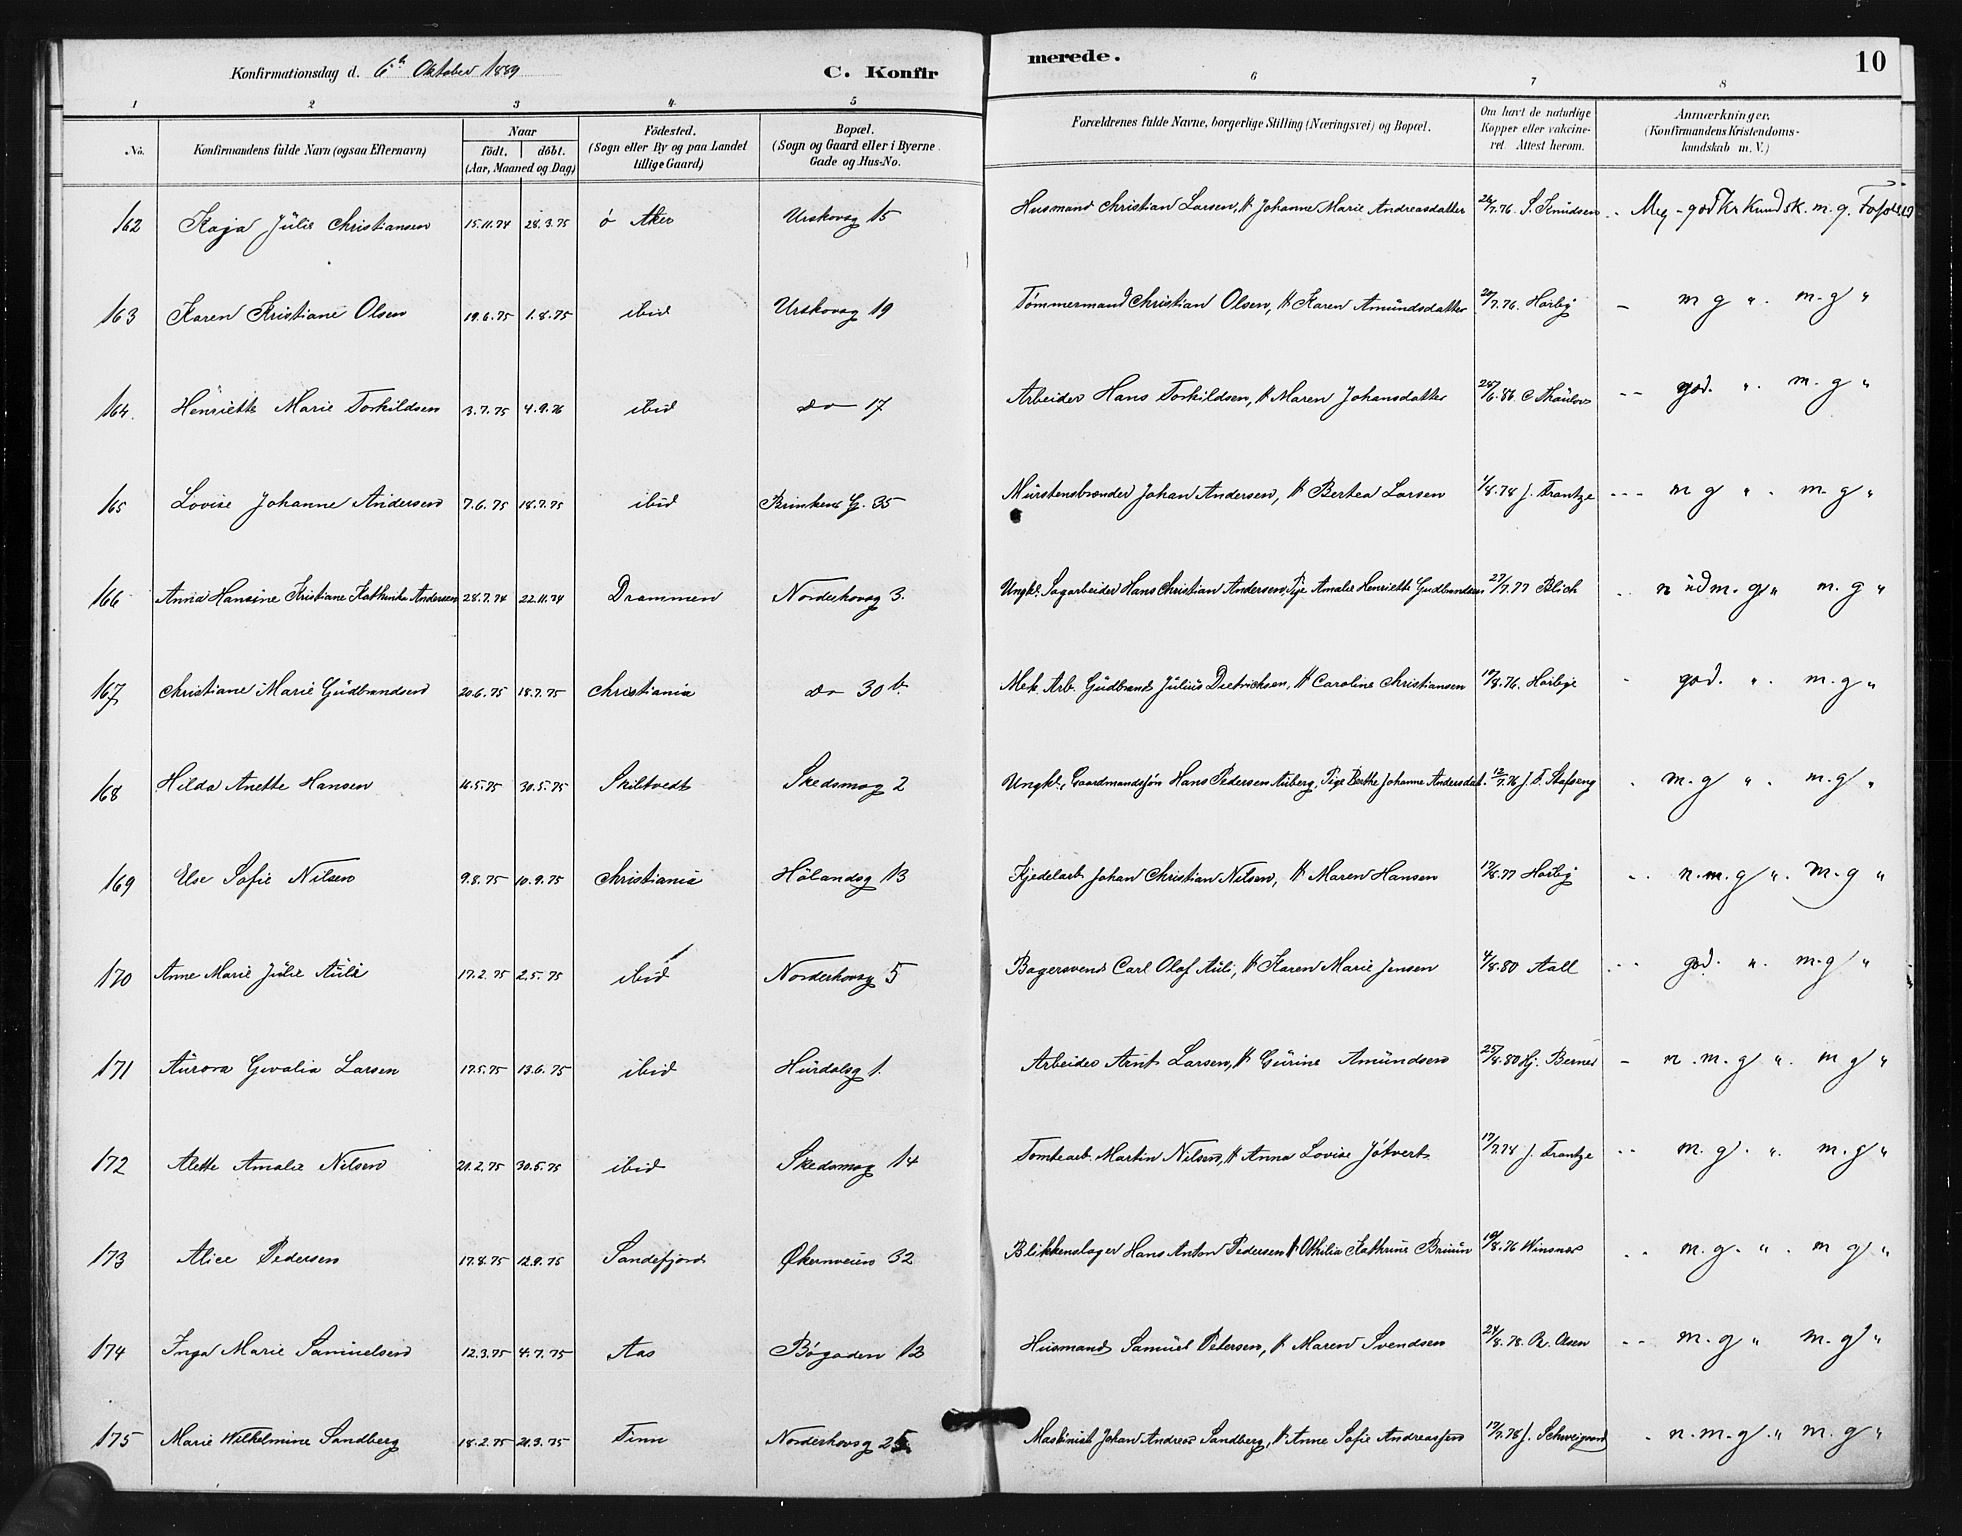 Konfirmationsdag d. 6te Oktober 1889 C. Konfirmerede. 10
1 2 3 4. 5 6 7 8
No. Konfirmandens fulde Navn (ogsaa Efternavn) Naar födt. döbt. (Aar, Maaned og Dag) Födested. (Sogn eller By og paa Landet tillige Gaard) Bopæl. (Sogn og Gaard eller i Byerne Gade og Hus-No. Forældrenes fulde Navne, borgerlige Stilling (Næringsvei) og Bopæl. Om havt de naturlige Kopper eller vakcineret. Attest herom. Anmærkninger. (Konfirmandens Kristendomskundskab m. V.)
162 Kaja Julie Christiansen 15.11.74 28.3.75 Ø Aker Urskovsg 15 Husmand Christian Larsen, H Johanne Marie Andreasdatter 7.76. S. Knudsen Meg - god Kr Kundsk. m. g. Forhold
163 Karen Kristiane Olsen 19.6.75 1.8.75 ibid Urskovsg 19 Tømmermand Christian Olsen, H Karen Amundsdatter 20/7.76. Hørbye m g " . m. g "
164. Henriette Marie Torkildsen 3.7.75 4.9.76 ibid do 17 Arbeider Hans Torkildsen, H Maren Johansdatter 6.86. C Thaulow god. " . m. g "
165 Lovise Johanne Andersen 7.6.75 18.7.75 ibid Brinkens G. 35 Murstensbrænder Johan Andersen, H Bertea Larsen 1/8.78 J. Frantze m g " . m. g "
166 Anna Hansine Kristiane Kathinka Andersen 28.7.74 22.11.74 Drammen Norderhovsg 3. Ungk. Sagarbeider Hans Christian Andersen, Pige Amalie Henriette Gudbrandsen 27/7.77 Blich n ud m. g " m. g "
167 Christiane Marie Gudbrandsen 20.6.75 18.7.75 Christiania do 30 b. Mek. Arb. Gudbrand Julius Diedricksen, H Caroline Christiansen 19/8.76. Hørbye god. " . m. g "
168 Hilda Anette Hansen 4.5.75 30.5.75 Skiltvedt Skedsmog 2 Ungk., Gaardmandssøn Hans Pedersen Auberg, Pige Berthe Johanne Andersdat. 12/7.76 J. F. Stafseng m. g " . m. g "
169 Else Sofie Nilsen 9.8.75 10.9.75 Christiania Hølandsg 13 Kjedelarb Johan Christian Nilsen, H Maren Hansen 17/8.77 Hørbye n. m. g " . m. g "
170 Anne Marie Julie Auli 17.2.75 2.5.75 ibid Norderhovsg 5 Bagersvend Carl Olaf Auli, H Karen Marie Jensen 4/8.80 Aall god. " . m. g "
171 Aurora Gevalia Larsen 17.5.75 13.6.75 ibid Hurdalsg 1. Arbeider Arnt Larsen, H Gurine Amundsen 25/8.80 Hj. Berner n. m. g " . m g "
172 Alette Amalie Nilsen 21.2.75 30.5.75 ibid Skedsmog 14 Tomtearb. Martin Nilsen, H Anna Lovise Jøtvert 17/7.78 J. Frantze m. g. " . m. g "
173 Alice Pedersen 17.8.75 12.9.75 Sandefjord Økernveien 32 Blikkenslager Hans Anton Pedersen H Othilia Kathrine Bruun 19/8.76 Winsnes m. g. " . m g "
174 Inga Marie Samuelsen 12.3.75 4.7.75 Aas Bøgaden 12 Husmand Samuel Petersen, H Maren Svendsen 24/8.78. R. Olsen m. g " m. g "
175 Marie Wilhelmine Sandberg 18.2.75 21.3.75 Tinn Norderhovsg 25 Maskinist Johan Andreas Sandberg, H Anne Sofie Andreassen 17/7.78 J. Schweigaard n. m. g . " m. g "